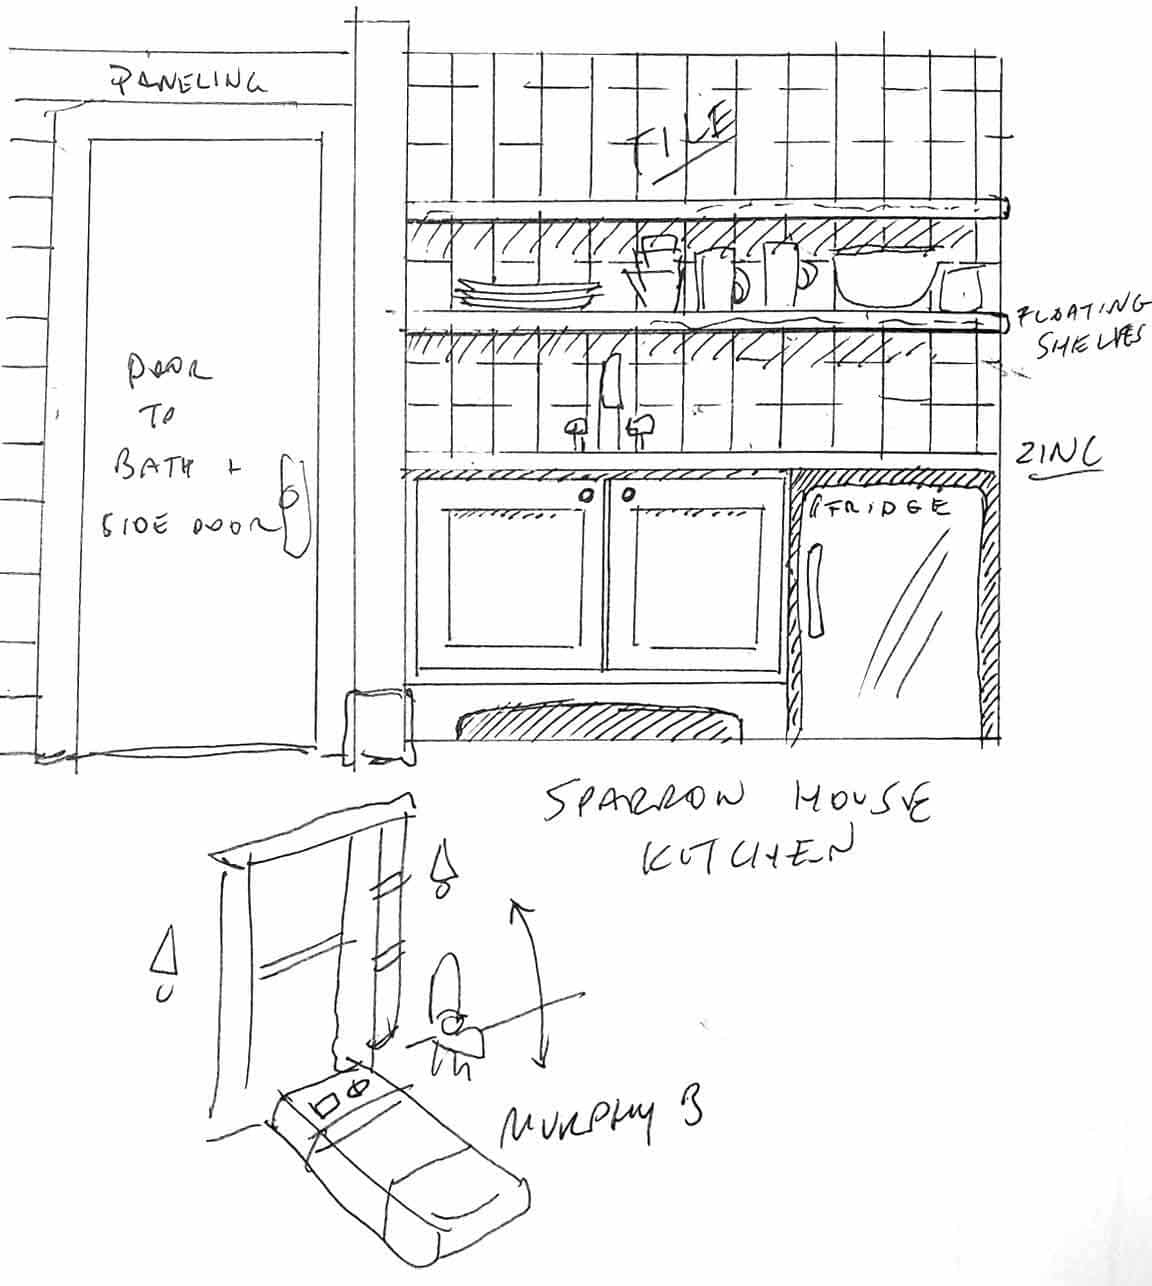 PANELING
TILE
FLOATING
SHELVES
DOOR
TO
BATH +
SIDE DOOR
ZINC
FRIDGE
SPARROW HOUSE
KITCHEN
MURPHY B